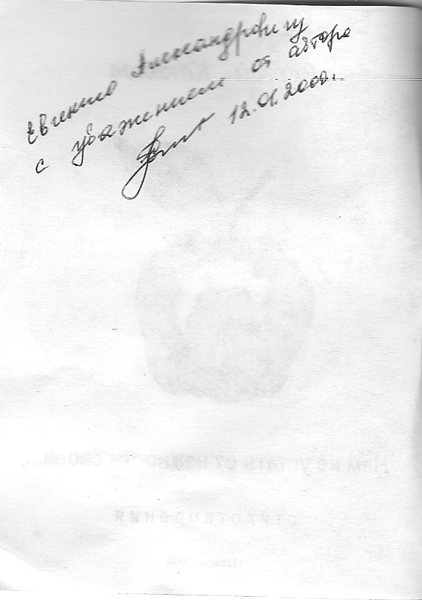 Евгению Александровичу
с уважением от автора
12.01.2000г.
Нам не устать от нежности своей...
СТИХОТВОРЕНИЯ